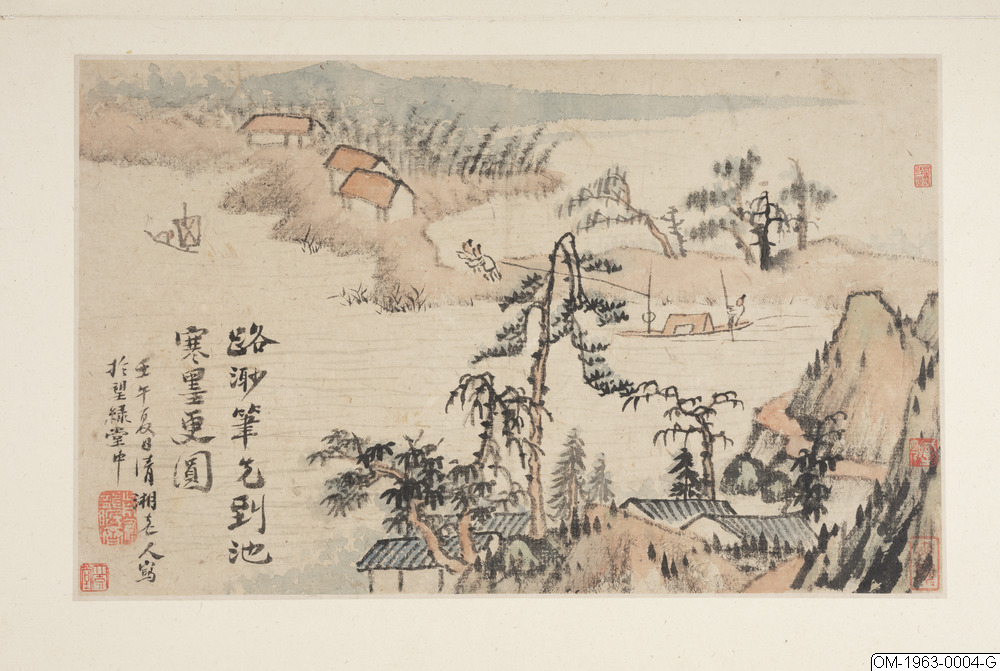 路渺筆先到池
寒墨更圓
壬午夏日清湘老人寫
於望綠堂中
OM-1963-0004-G